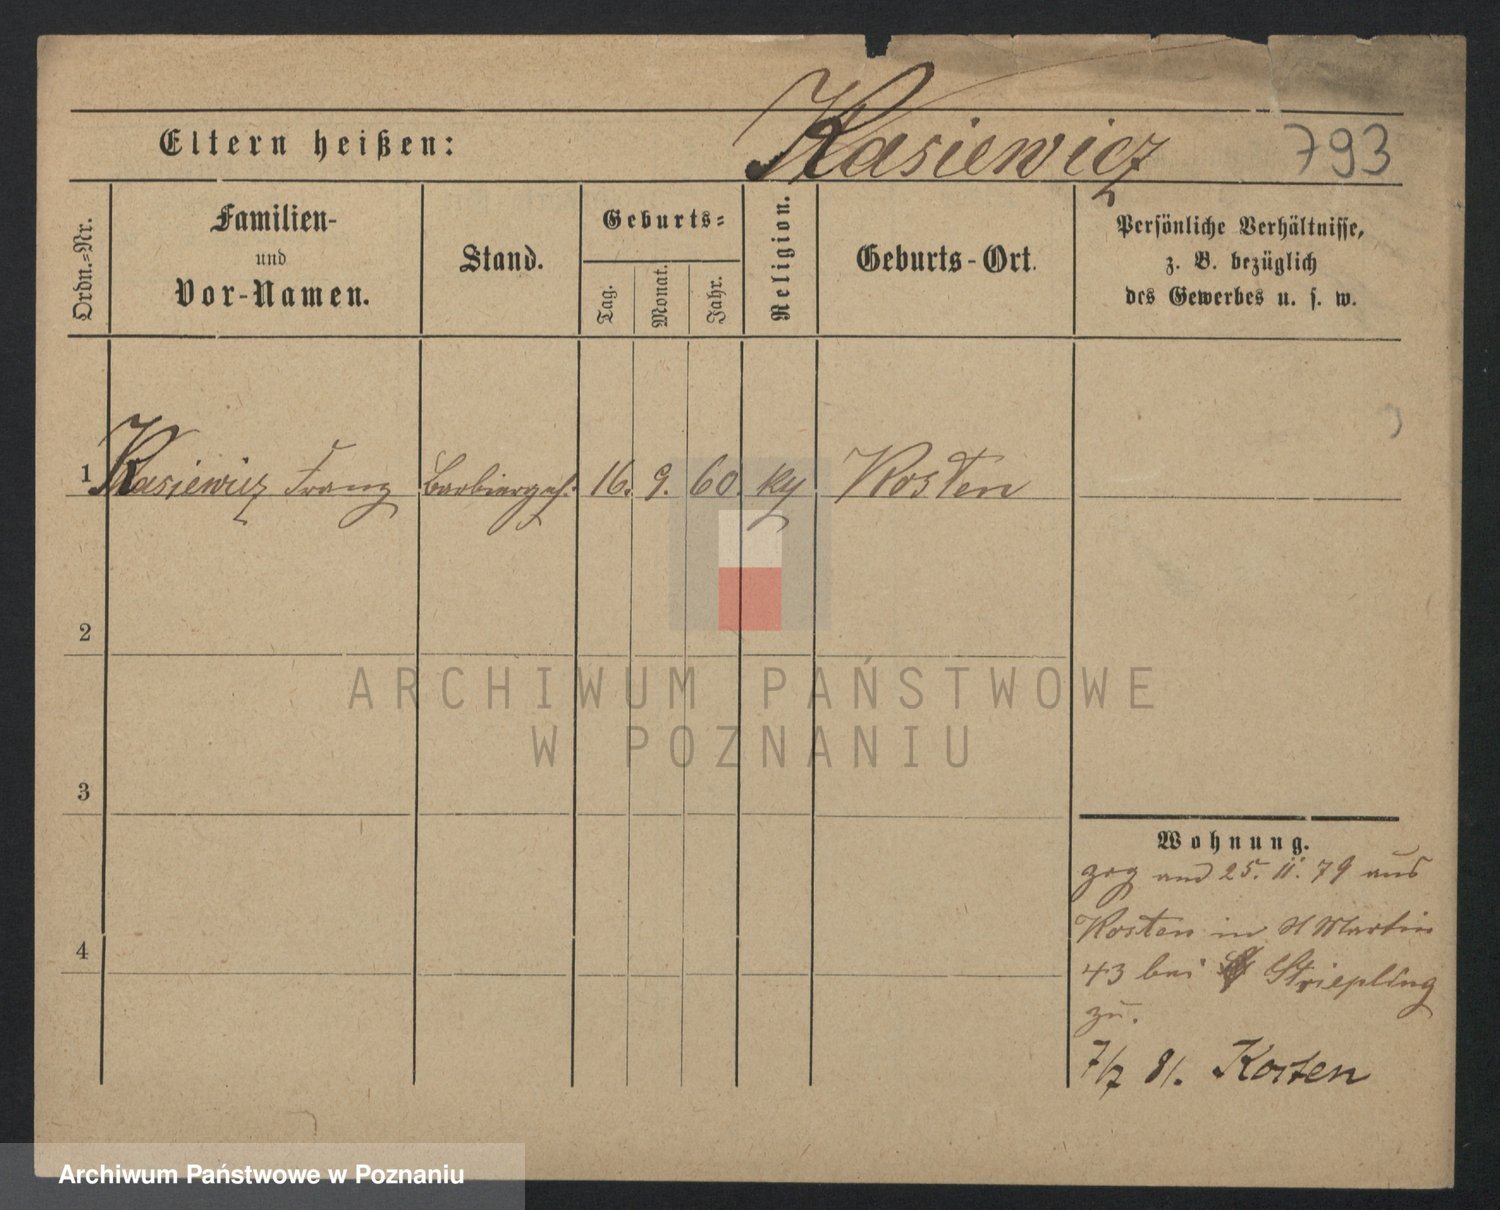 Kasiewicz 793
Eltern heißen:
Ordn.=Nr.
Familien-
und
Vor-Namen.
Stand.
Geburts=
Tag.
Monat.
Jahr.
Religion.
Geburts-Ort.
Persönliche Verhältnisse,
z. B. bezüglich
des Gewerbes u. s. w.
1 Kasiewicz Franz Barbiergeh. 16. 9. 60 Kosten
2
3
4
Wohnung.
zog 25. 11. 79 aus
Kosten in St Martin
43 bei Striepling
zu.
7/7 81. Kosten
ARCHIWUM PAŃSTWOWE
W POZNANIU
Archiwum Państwowe w Poznaniu